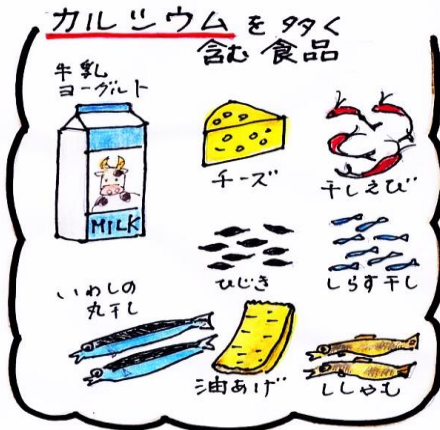 カルシウムを多く
含む食品
牛乳
ヨーグルト
MILK
チーズ
干しえび
ひじき
しらす干し
いわしの
丸干し
油あげ
ししゃも